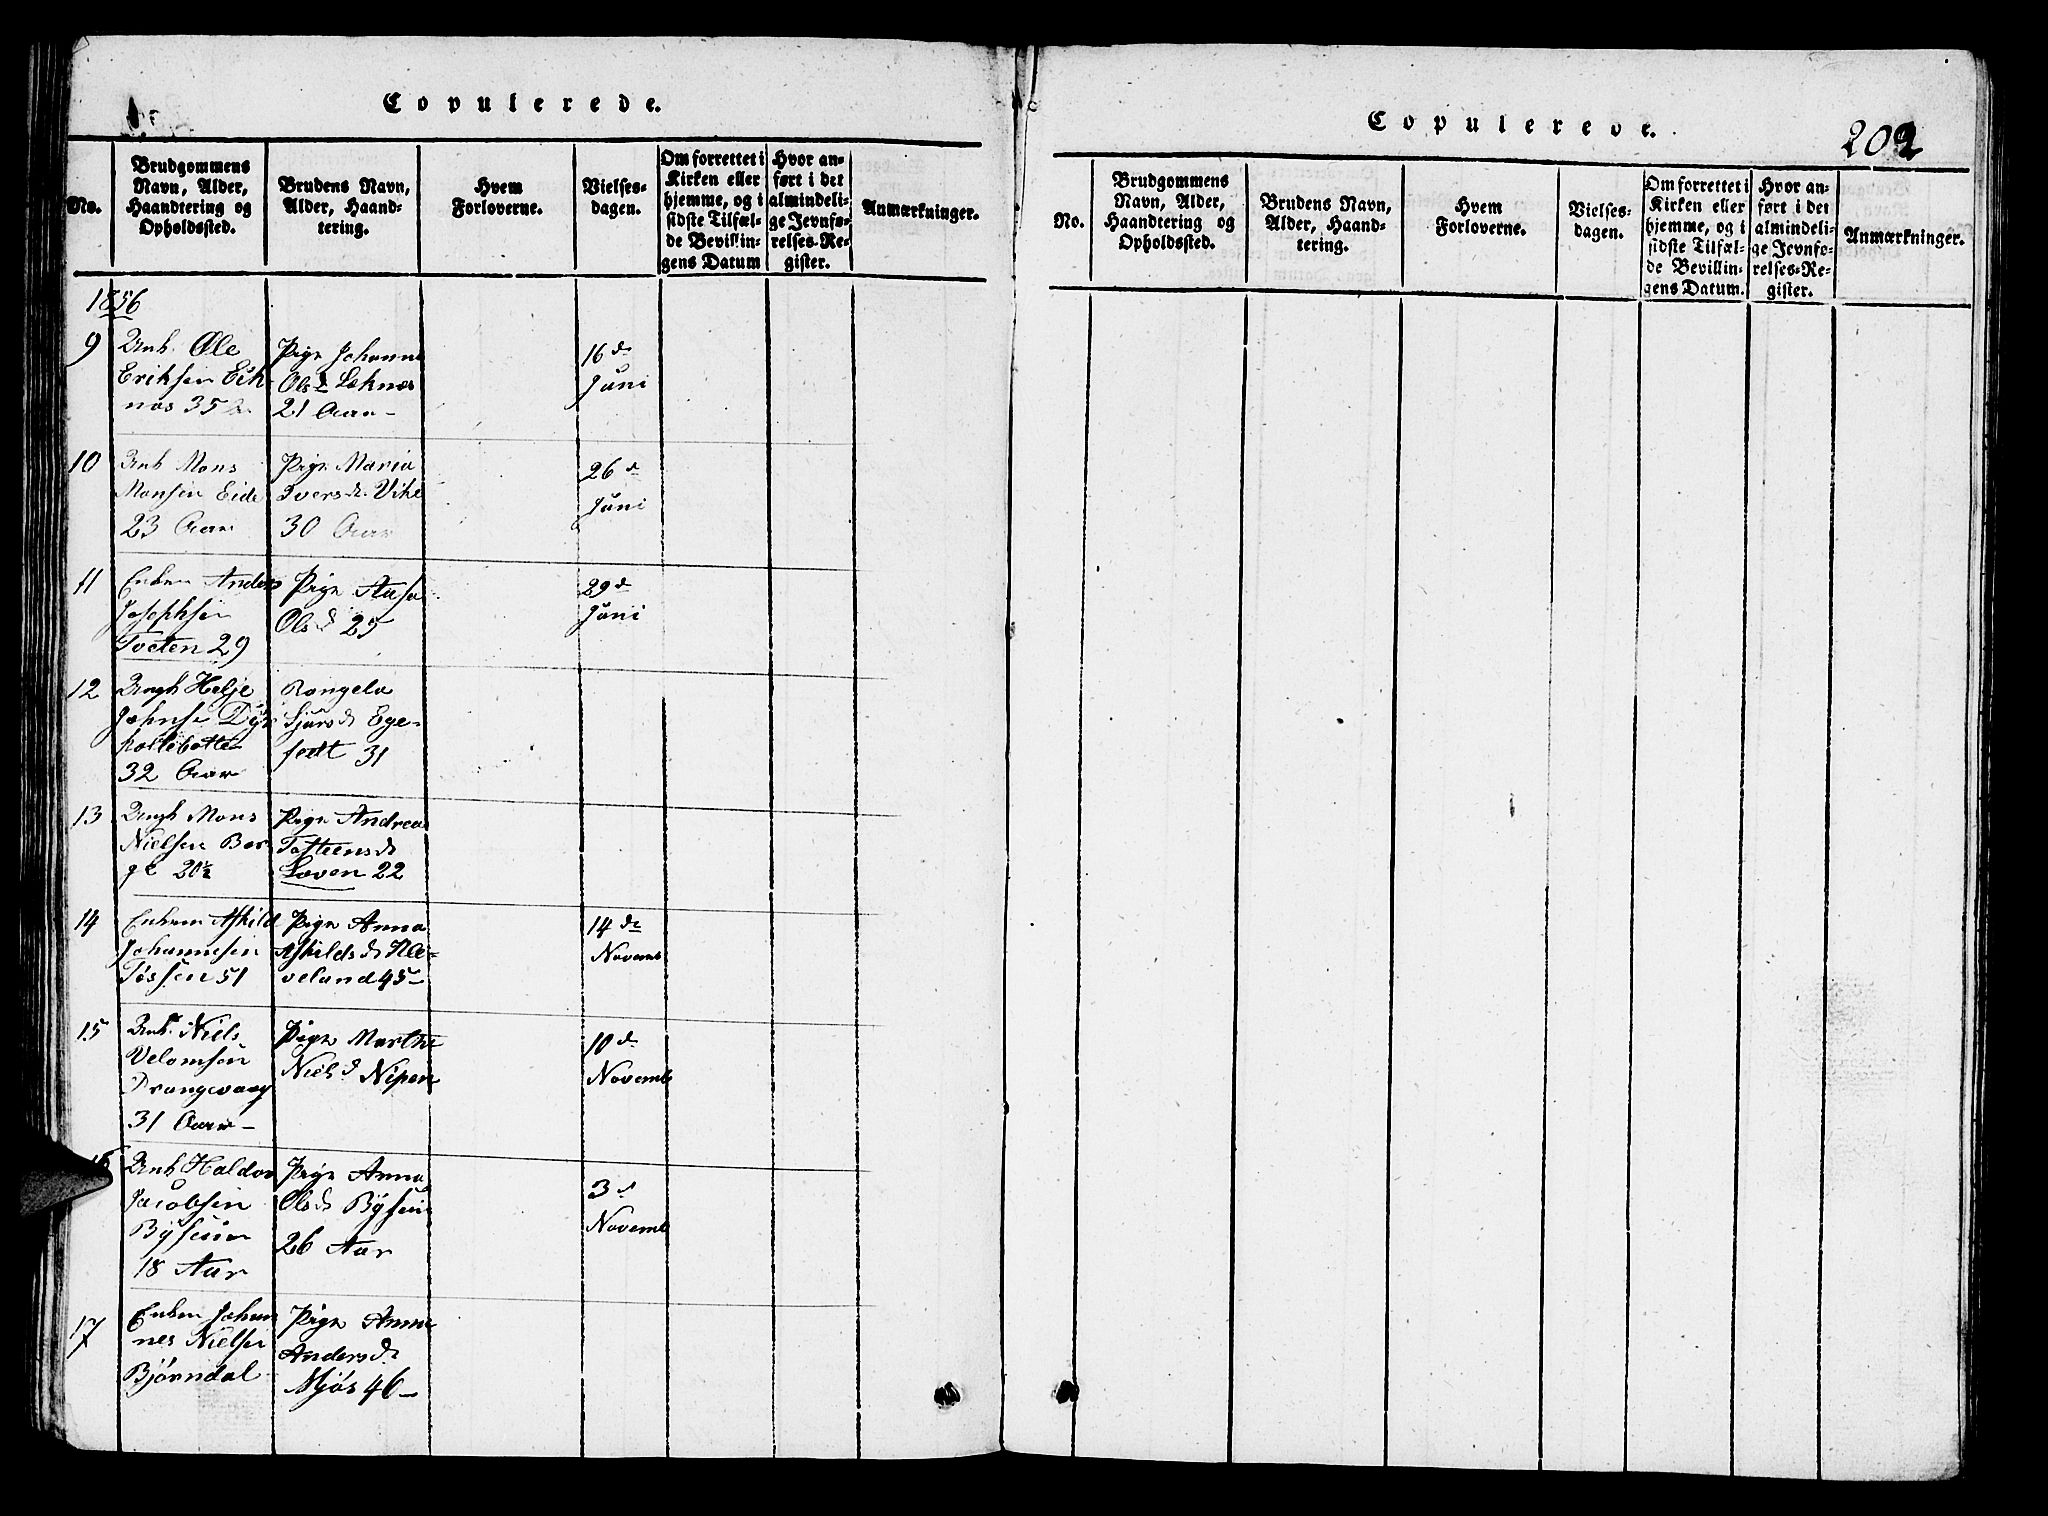 Copulerede.
No.
Brudgommens
Navn, Alder,
Haandtering og
Opholdssted.
Brudens Navn,
Alder, Haand-
tering.
Hvem
Forloverne.
Vielses-
dagen.
Om forrettet i
Kirken eller
hjemme, og i
sidste Tilfæl-
de Bevillin-
gens Datum
Hvor an-
ført i det
almindeli-
ge Jevnfø-
relses-Re-
gister.
Anmærkninger.
1856
9
Unk. Ole
Eriksen Eik-
nes 35
Pige Johanne
Olsd Løknes
21 Aar
16 de
Juni
10
Unk Mons
Monsen Eide
23 Aar
Pige Maria
Iversdr. Vike
30 Aar
26 d
Juni
11
Enkem Anders
Josephsen
Tveten 29
Pige Aasa
Olsd 25
29 d
Juni
12
Ungk Helje
Johnse
32 Aar
Rangela
Sjursd Ege-
fedt 31
13
Ungk Mons
Nielsen Bor
ge 20½
Pige Andrea
Tosteensd
Loven 22
14
Enkem Askild
Johannesen
Tøssen 51
Pige Anna
Askildsd Kle-
veland 45
14 de
Novemb
15
Unk. Niels
Velomsen
Drangevaag
31 Aar
Pige Marthe
Nielsd Nipen
10 de
Novemb
16
Unk Haldor
Jacobsen
Bysen
18 Aar
Pige Anna
Olsd Bysen
26 Aar
3 d
Novemb
17
Enkem Johan
nes Nielsen
Bjørndal
Pige Anna
Andersd
Mjøs 46
Copulerede.
202
No.
Brudgommens
Navn, Alder,
Haandtering og
Opholdssted.
Brudens Navn,
Alder, Haand-
tering.
Hvem
Forloverne.
Vielses-
dagen.
Om forrettet i
Kirken eller
hjemme, og i
sidste Tilfæl-
de Bevillin-
gens Datum.
Hvor an-
ført i det
almindeli-
ge Jevnfø-
relses-Re-
gister.
Anmærkninger.